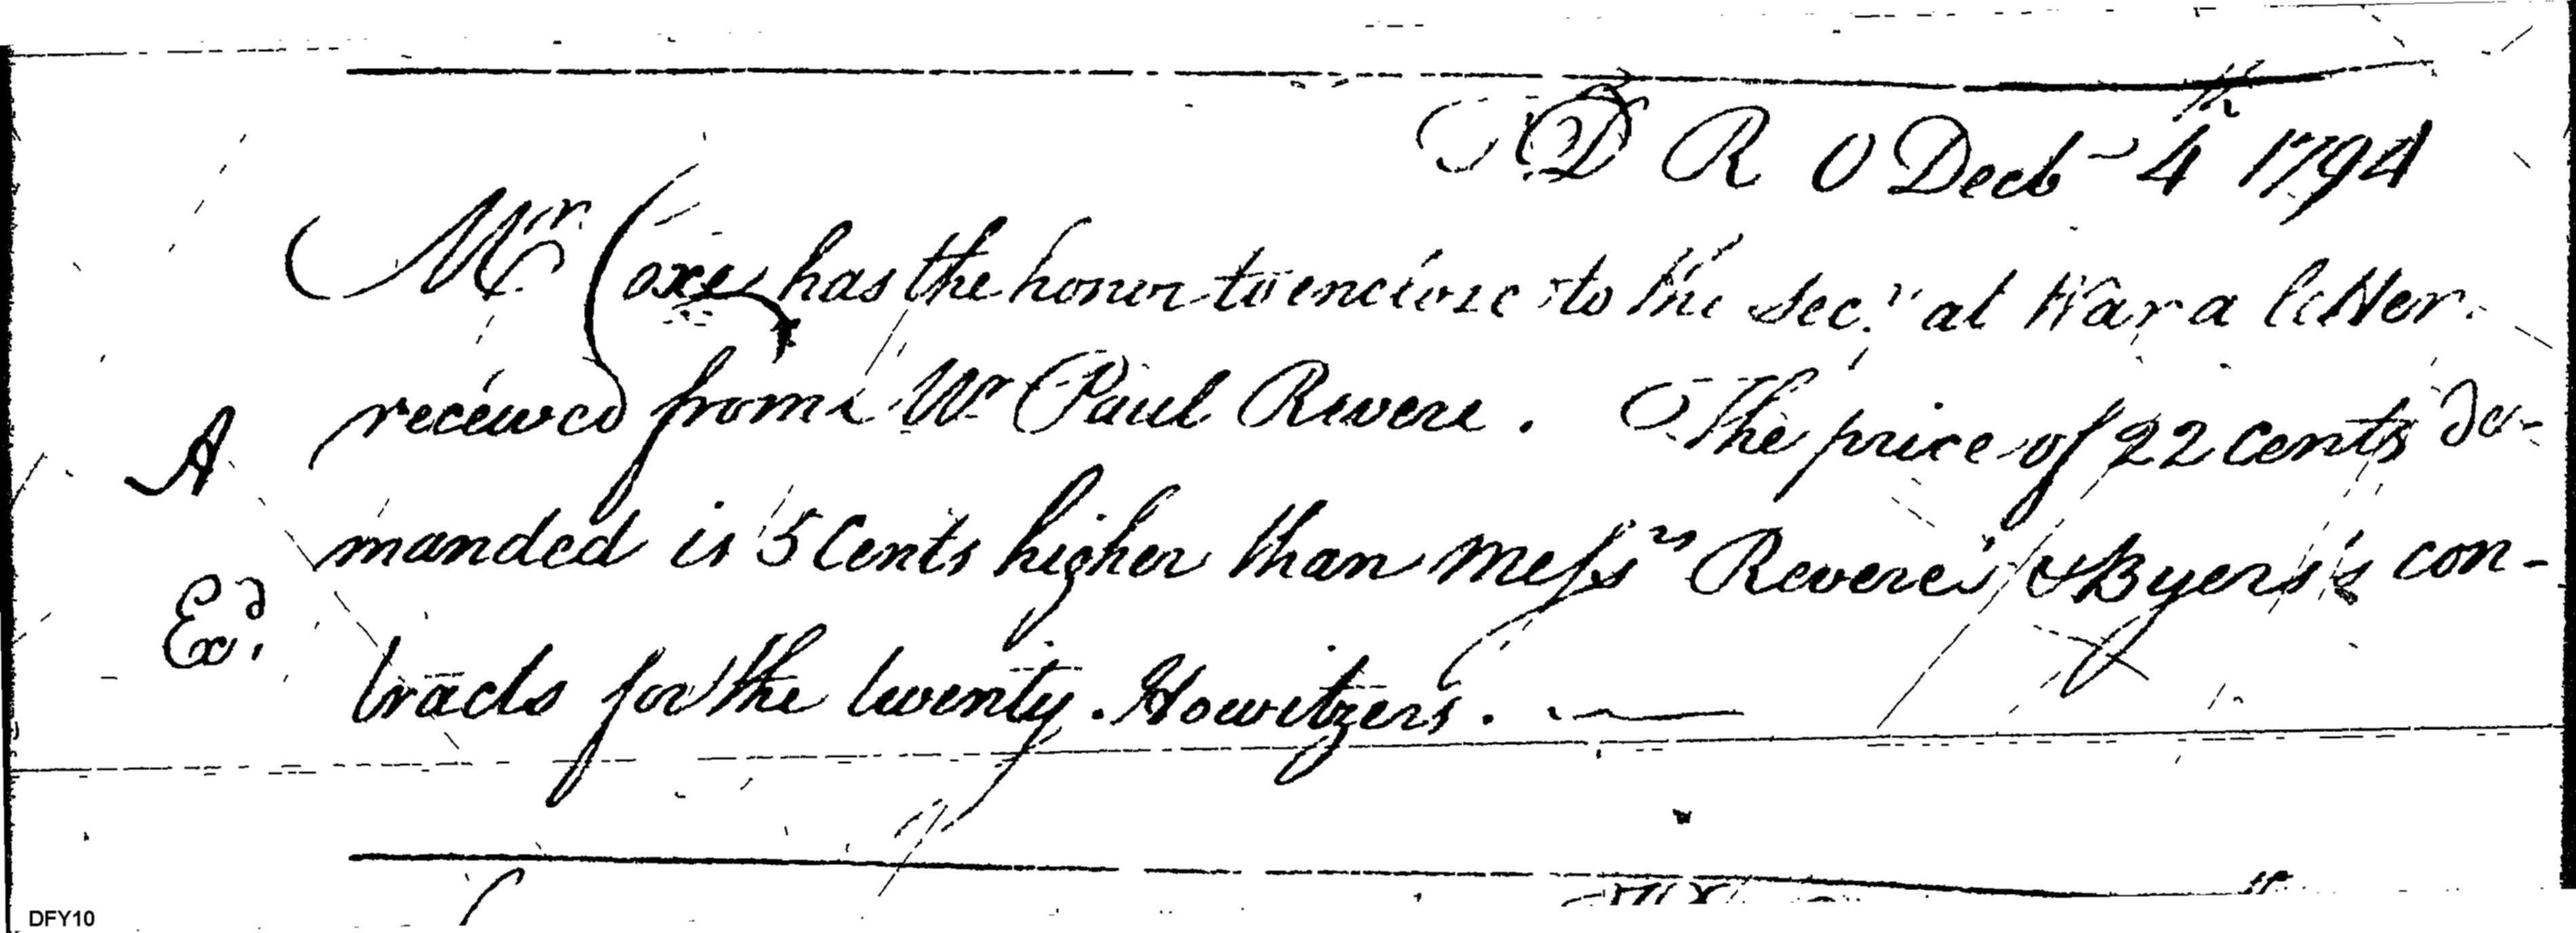 T D R O Decb^r 4^th 1794
M^r Coxe has the honor to enclose to the Sec^y at War a letter
received from M^r Paul Revere. The price of 22 Cents de-
A
manded is 5 Cents higher than Mess^rs Revere's & Byers's con-
Ex^d.
tracts for the twenty Howitzers.
DFY10